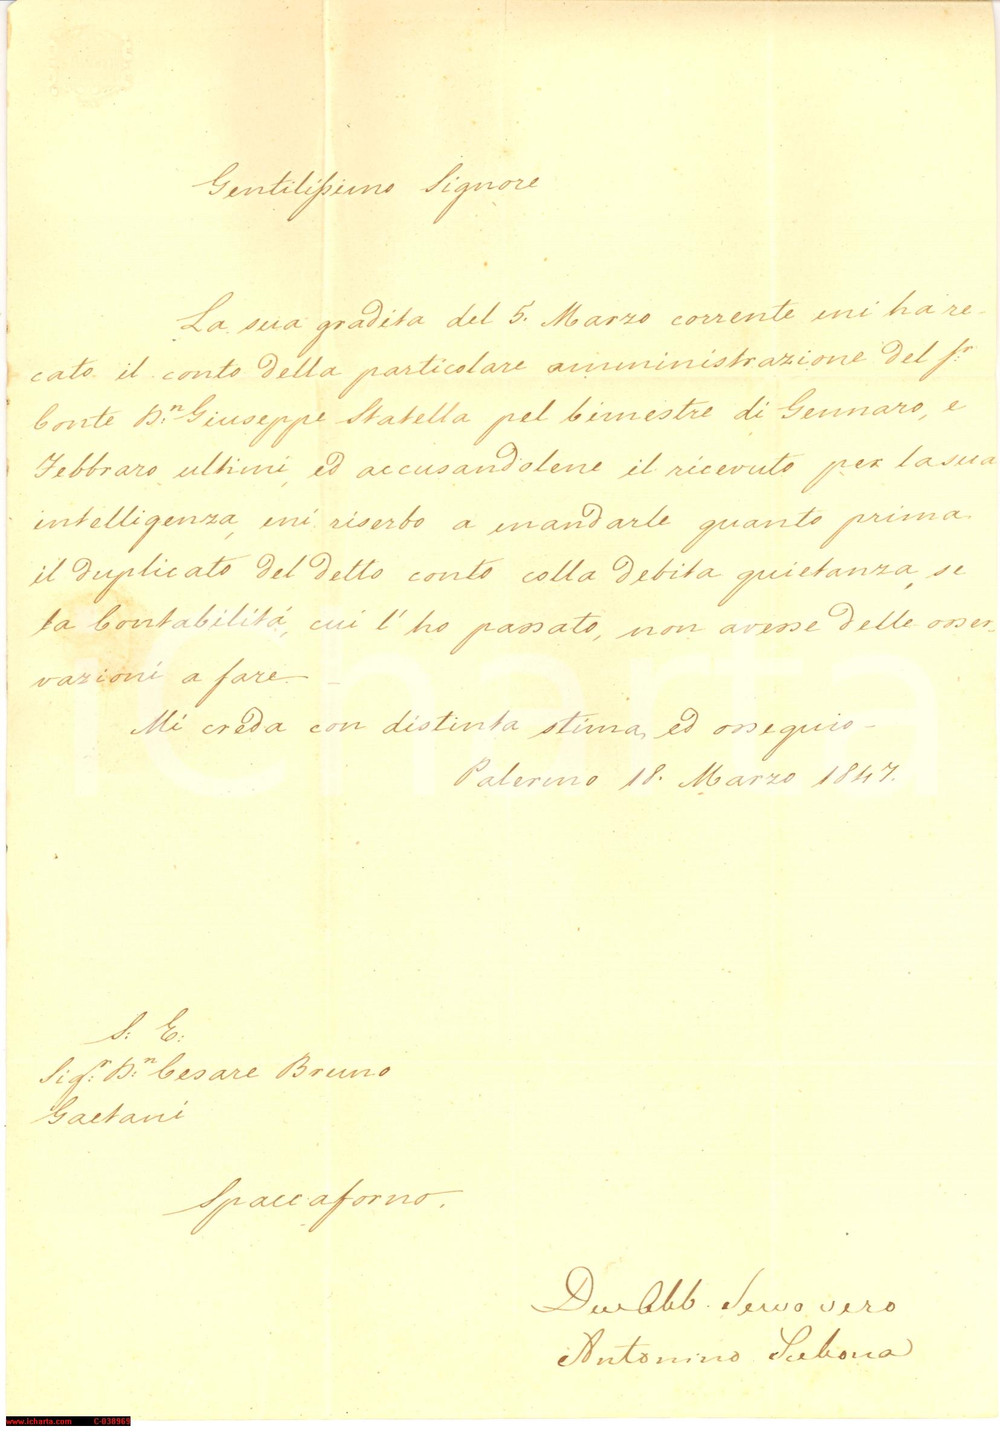 Gentilissimo Signore
La sua gradita del 5. Marzo corrente mi ha re-
cato il conto della particolare amministrazione del S.r
Conte D.n Giuseppe Statella pel bimestre di Gennaro, e
Febbraro ultimi, ed accusandolene il ricevuto per la sua
intelligenza, mi riserbo a mandarle quanto prima
il duplicato del detto conto colla debita quietanza, se
la Contabilità, cui l'ho passato, non avesse delle osser-
vazioni a fare.
Mi creda con distinta stima, ed ossequio -
Palermo 18. Marzo 1847.
S: E:
Sig.r D.n Cesare Bruno
Gaetani
Spaccaforno.
Obb. Servo vero
Antonino
www.icharta.com C-838969